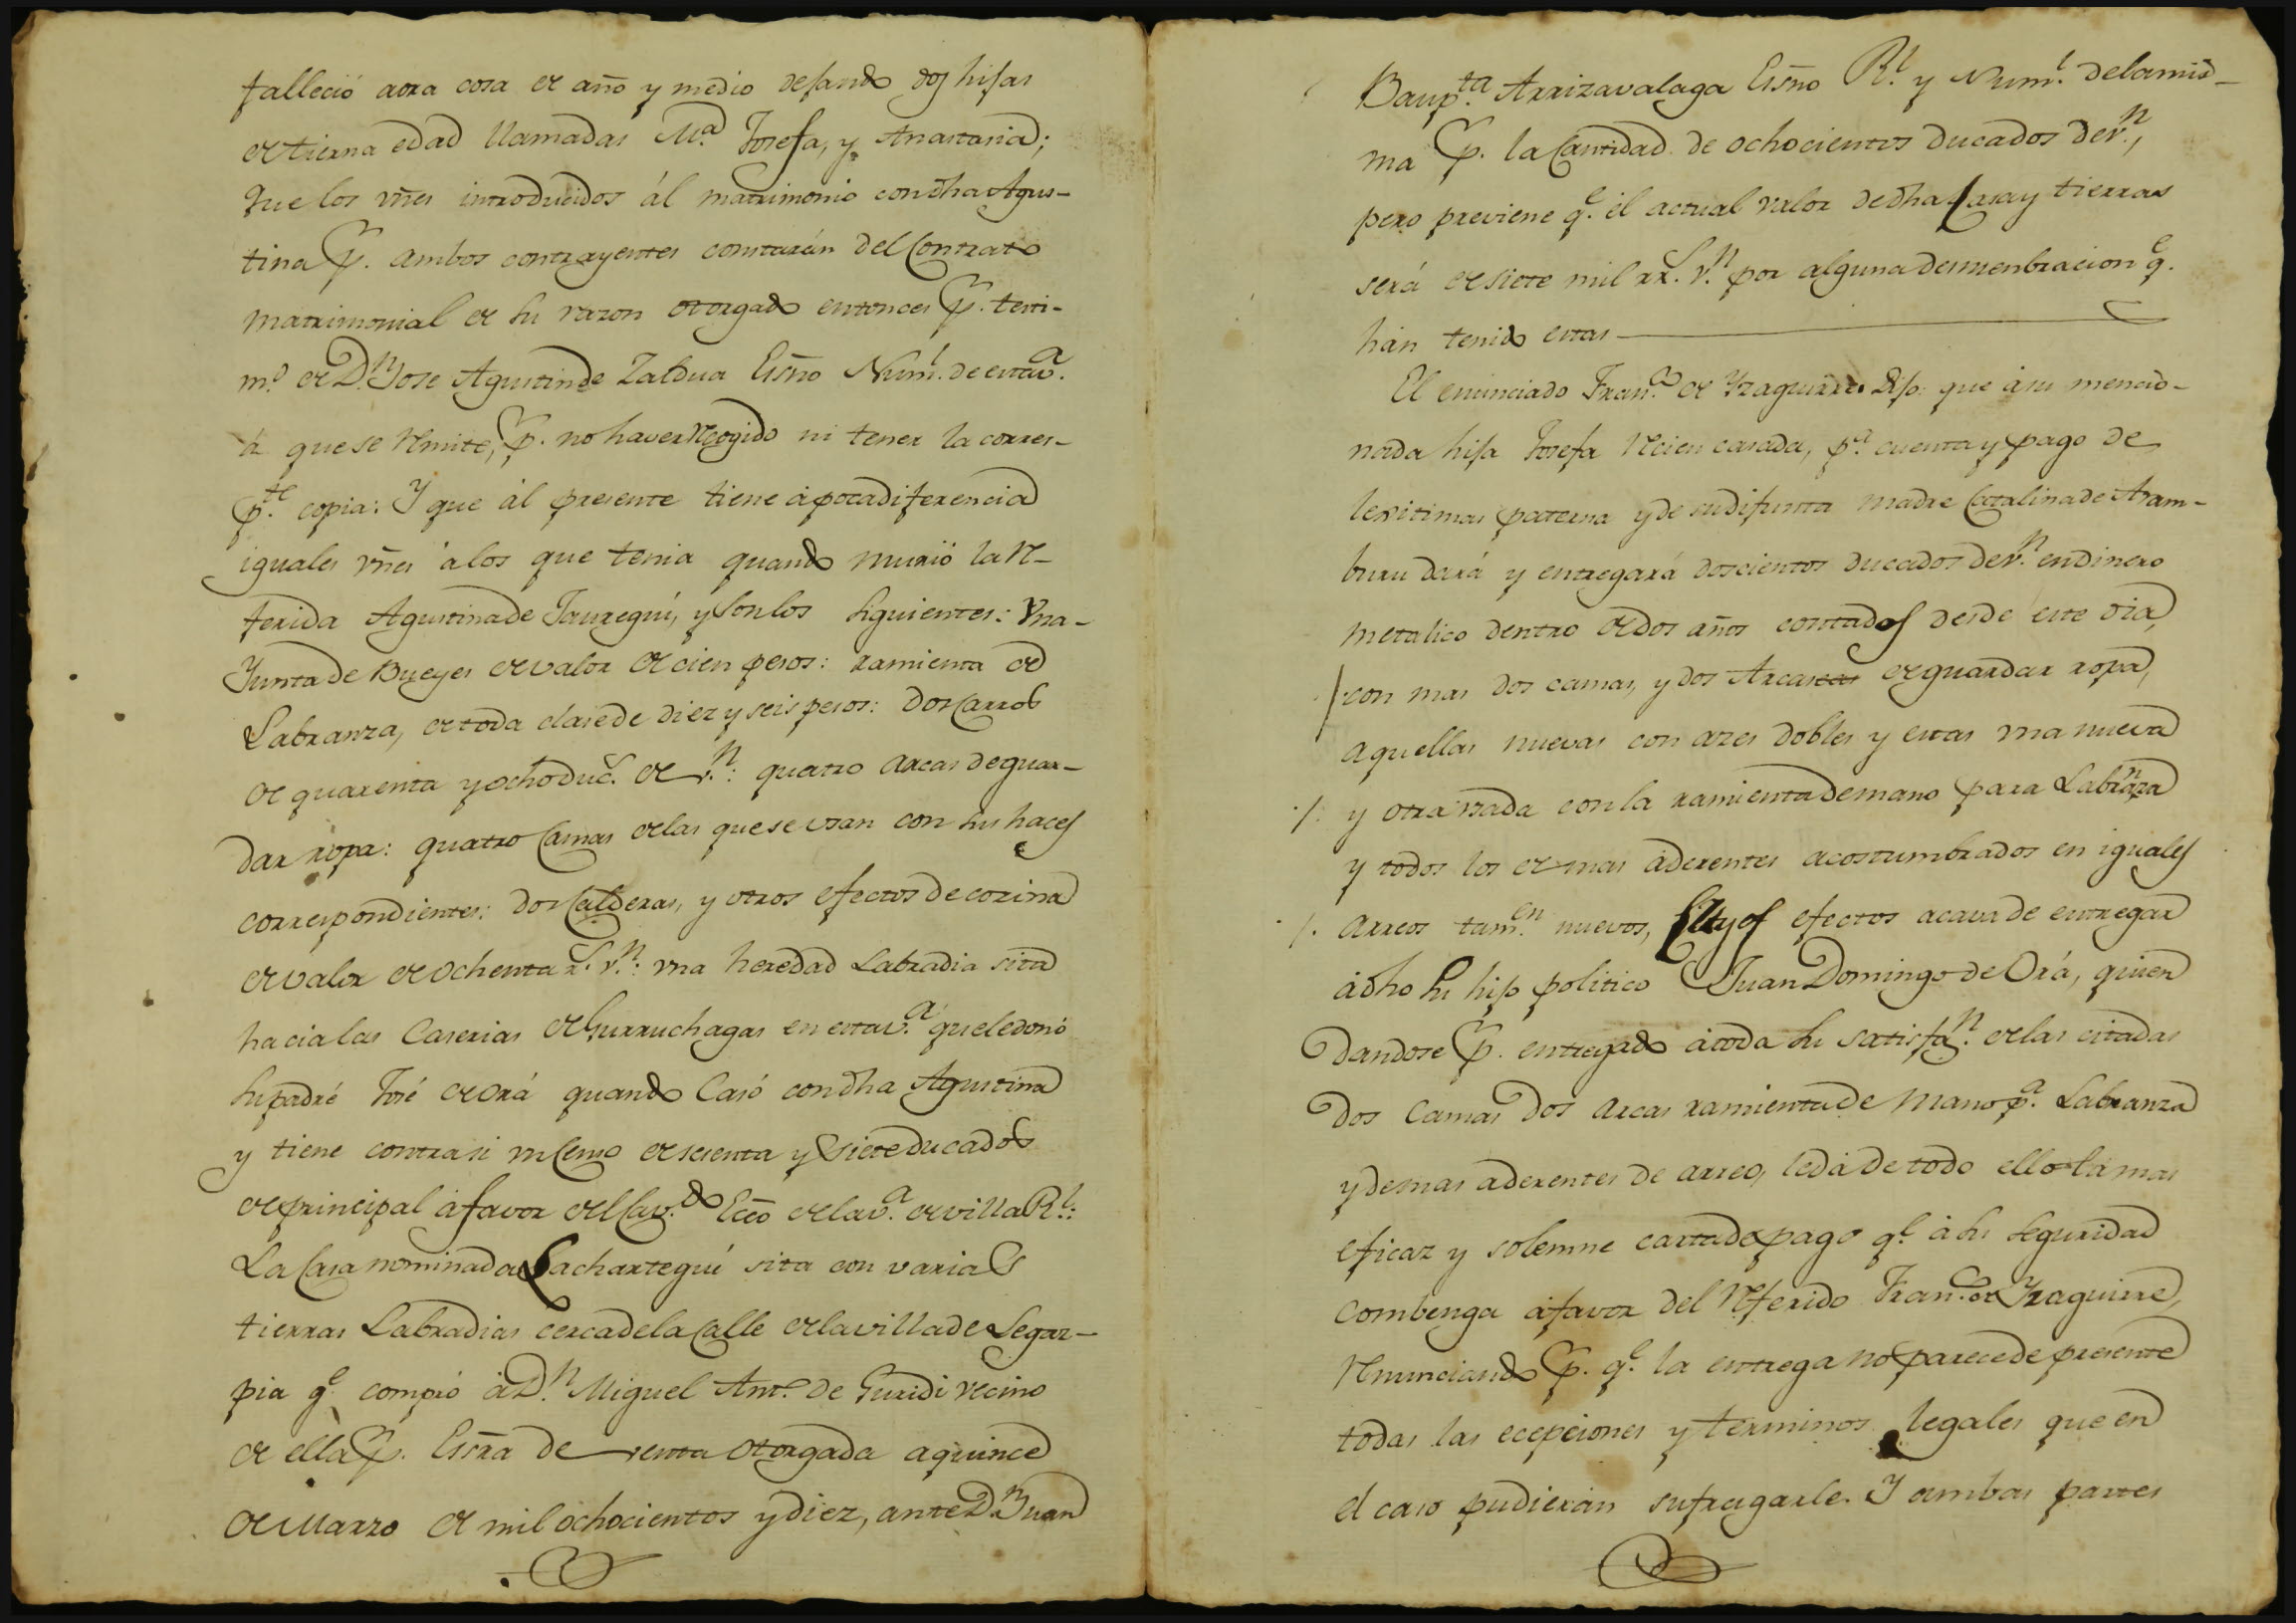 falleció aora cosa de año y medio dejando dos hijas
de tierna edad llamadas M.ª Josefa, y Anastasia;
que los v̄nes introducidos ál matrimonio con dha Agus-
tina p.r ambos contrayentes constarán del Contrato
matrimonial de su razon otorgado entonces p.r testi-
m.º de D.n Jose Agustin de Zaldua Es̄no Num.l de esta v.ª
á que se remite, p.r no haver recogido ni tener la corres-
p.te copia: Y que ál presente tiene á poca diferencia
iguales v̄nes á los que tenia quando murió la re-
ferida Agustina de Jauregui, y son los siguientes: Vna
Junta de Bueyes de valor de cien pesos: ramienta de
Labranza, de toda clase de diez y seis pesos: dos Carros
de quarenta y ocho duc.s de v.n: quatro arcas de guar-
dar ropa: quatro Camas de las que se vsan con sus haces
correspondientes: dos Calderas, y otros efectos de cozina
de valor de ochenta r.s v.n: vna heredad Labradia sita
hacia las Caserias de Gurruchagas en esta v.ª que le donó
su padré José de Orá quando Casó con dha Agustina
y tiene contra si vn Censo de sesenta y siete ducados
de principal á favor del Cav.do Ecc̄o de la v.ª de villa R.l:
La Casa nominada Lachartegui sita con varias
tierras Labradias cerca de la Calle de la villa de Legaz-
pia q.e compró á D.n Miguel Ant.º de Guridi vecino
de ella p.r Es̄ra de venta otorgada a quince
de Marzo de mil ochocientos y diez, ante D.n Juan
Baup.ta Arrizavalaga Es̄no R.l y Num.l de la mis-
ma p.r la Cantidad de ochocientos ducados de v.n,
pero previene q.e él actual valor de dha Casa y tierras
será de siete mil rr.s v.n por alguna desmenbracion q.e
han tenido estas
El enunciado Fran.co de Yzaguirre Dijo: que á su mencio-
nada hija Josefa recien casada, p.ª cuenta y pago de
lexitimas paterna y de su difunta madre Catalina de Aram-
buru dará y entregará doscientos ducados de v.n en dinero
metalico dentro de dos años contados desde este dia,
con mas dos camas, y dos Arcas de guardar ropa,
aquellas nuevas con azes dobles y estas vna nueva
y otra vsada con la ramienta de mano para Labranza
y todos los demas aderentes acostumbrados en iguales
arreos tam.en nuevos, Cuyos efectos acava de entregar
á dho su hijo politico Juan Domingo de Orá, quien
dandose p.r entregado á toda su satisfa.n de las citadas
dos Camas dos arcas ramienta de mano p.ª Labranza
y demas aderentes de arreo, le dá de todo ello la mas
eficaz y solemne carta de pago q.e á su seguridad
combenga á favor del referido Fran.co de Yzaguirre,
renunciando p.r q.e la entrega no parece de presente
todas las ecepciones y terminos legales que en
el caso pudieran sufragarle. Y ambas partes